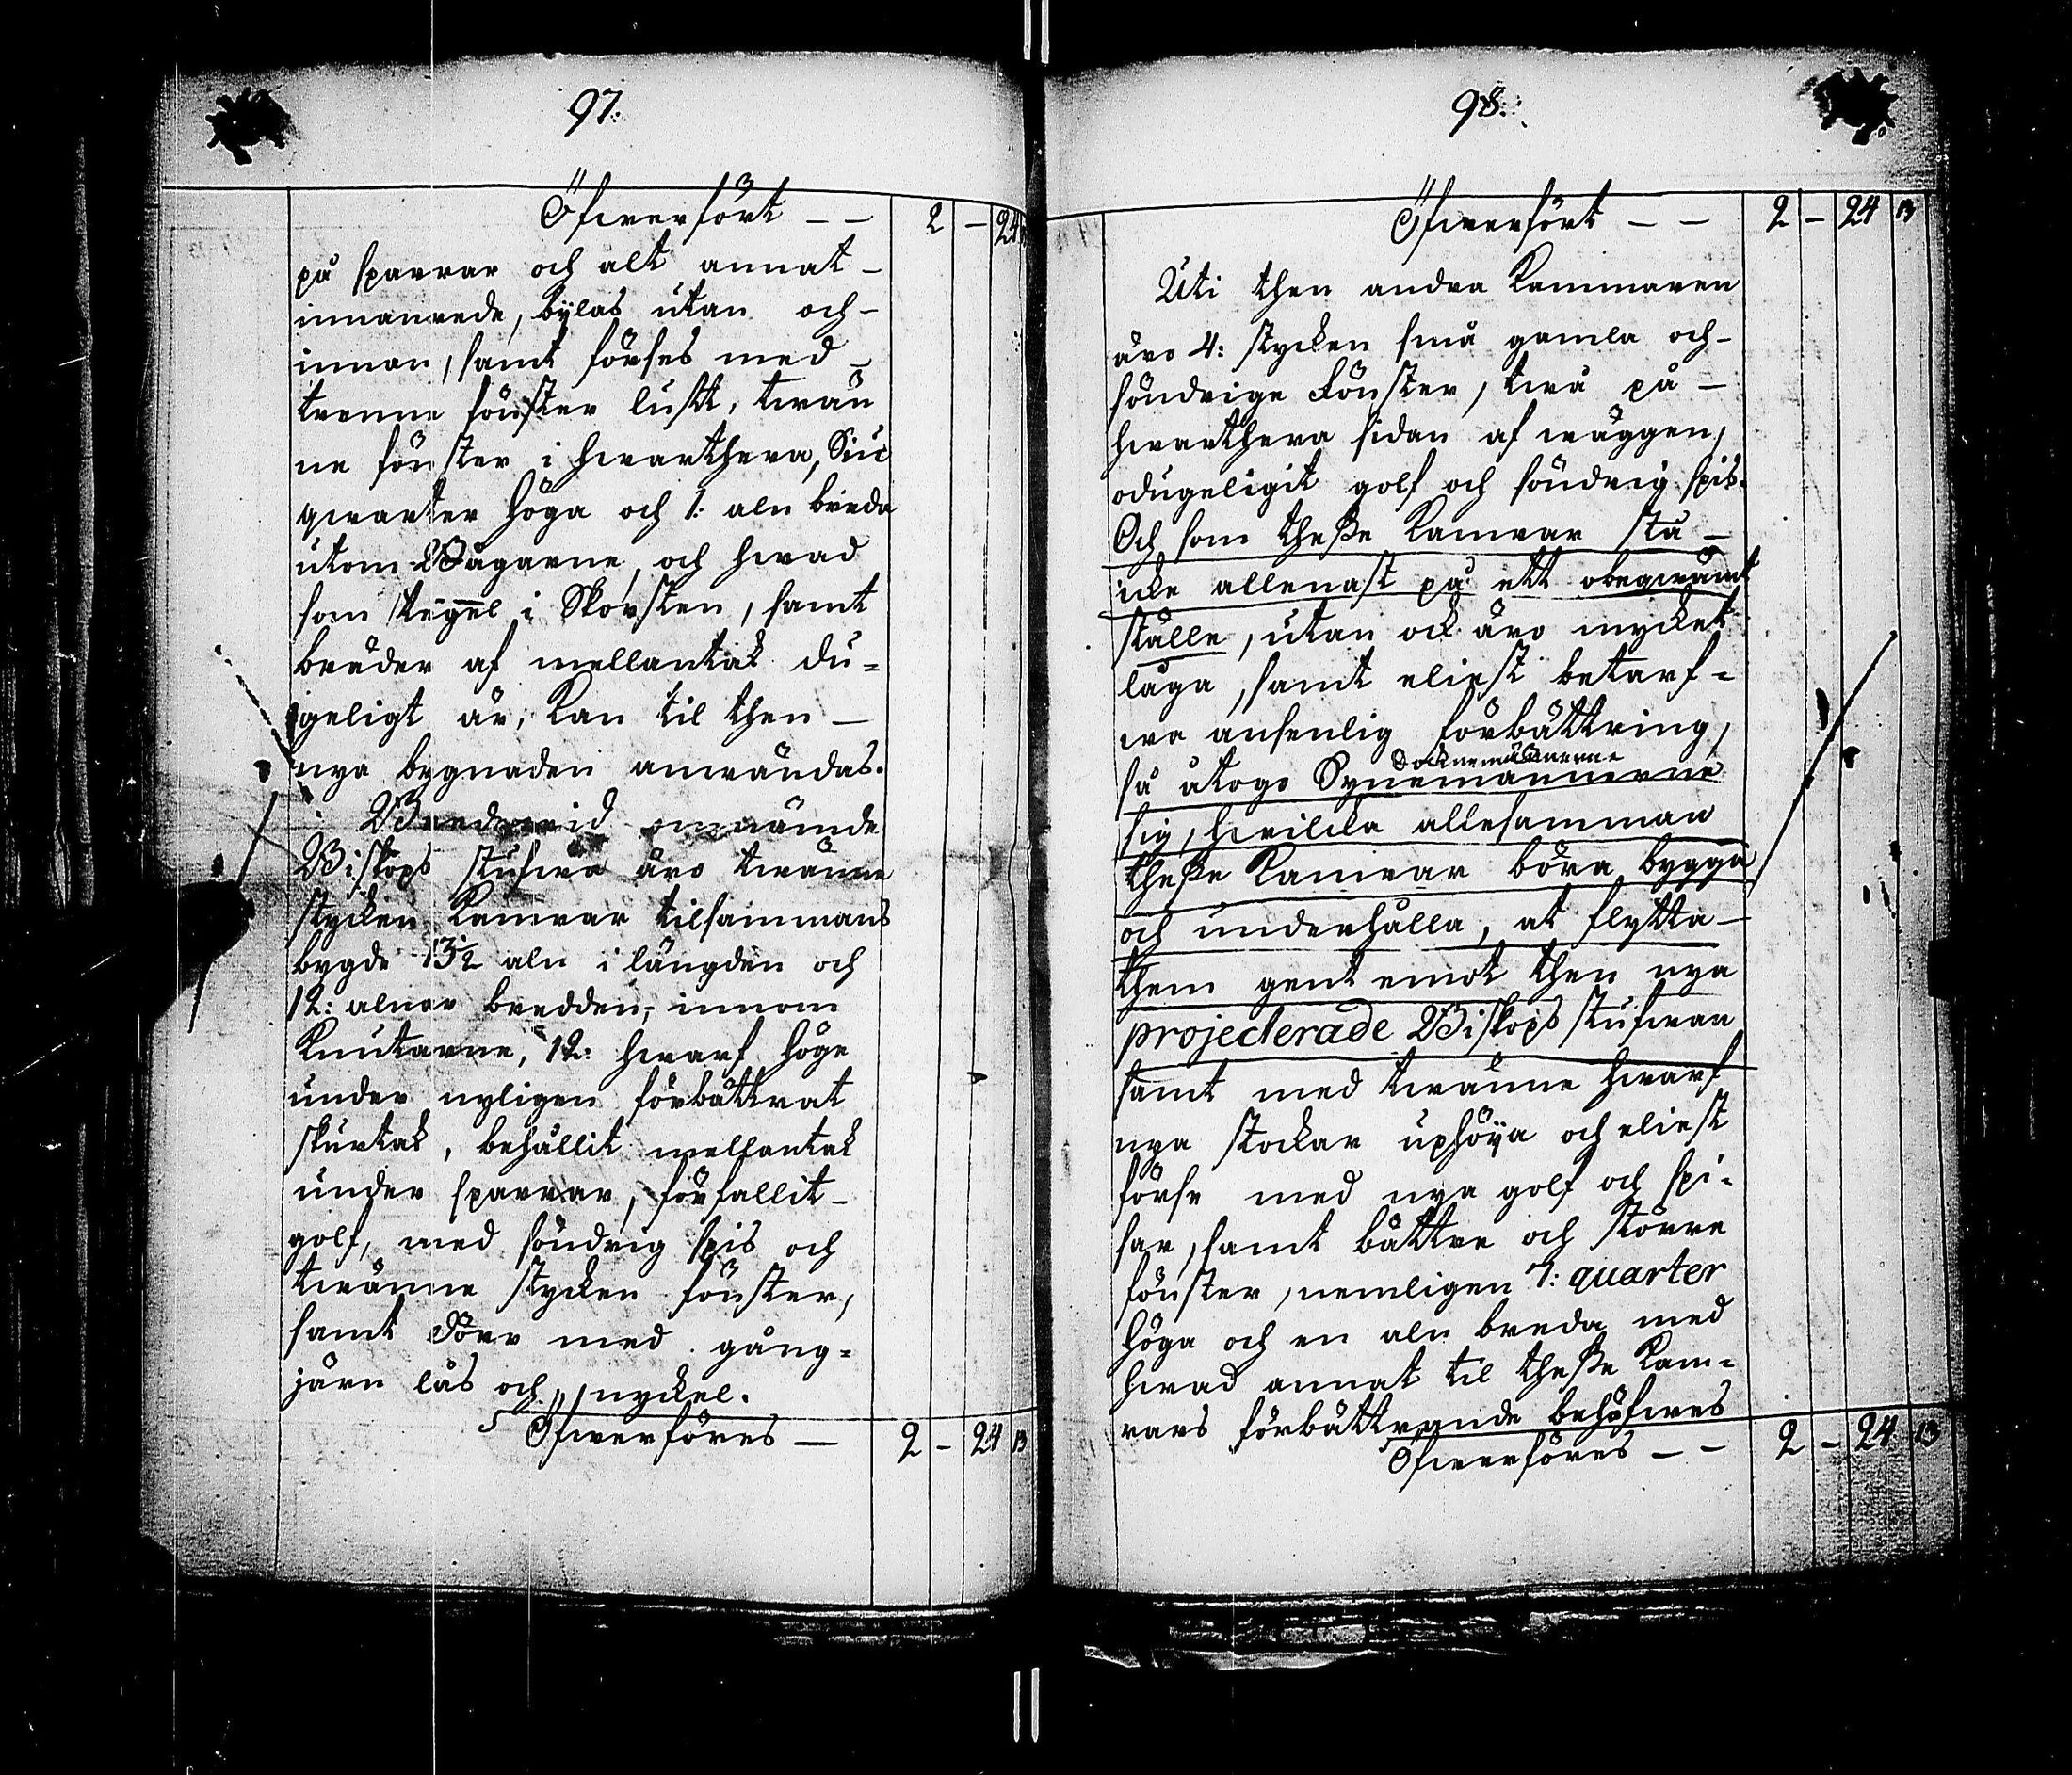 97.
Öfwerfört — — 2 — 24
på sparrar och alt annat –
innanrede, bylas utan och –
innan, samt förses med –
trenne fönster lufft, twän
ne fönster i hwarthera, Siu
qwarter höga och 1: aln breda
utom Bågarne, och hwad
som tegel i Skorsten, samt
bräder af mellantak du=
geligt är, kan til then –
nya bygnaden anwändas.
Bredewid omnämde
Biskops stufwa äro twänne
stycken Kamrar tilsammans
bygde 13½ aln i längden och
12: alnar bredden, innom
Knutarne, 12: hwarf höge
under nyligen förbättrat
skurtak, behållit mellantak
under sparrar, förfallit –
golf, med söndrig spis och
twänne stycken fönster,
samt Dörr med gång=
järn lås och nyckel.
Öfwerföres — 2 – 24 13
98.
Öfwerfört — — 2 – 24 13
Uti then andra Kammaren
äro 4: stycken små gamla och –
söndrige Fönster, twå på –
hwarthera sidan af wäggen,
odugeligit golf och söndrig spis.
Och som theße Kamrar stå –
icke allenast på ett obeqwämt
ställe, utan ock äro mycket
låga, samt eliest betarf=
wa ansenlig förbättring,
Socknemännerne
så åtogo Synemännerne
sig, hwilcka allesamman
theße Kamrar böra bygga
och underhålla, at flytta –
them gent emot then nya
projecterade Biskops stufwan
samt med twänne hwarf
nya stockar uphöya och eliest
förse med nya golf och spi=
sar, samt bättre och större
fönster, nemligen 7: quarter
höga och en aln breda med
hwad annat til theße Kam=
rars förbättrande behöfwes
Öfwerföres — — 2 – 24 13